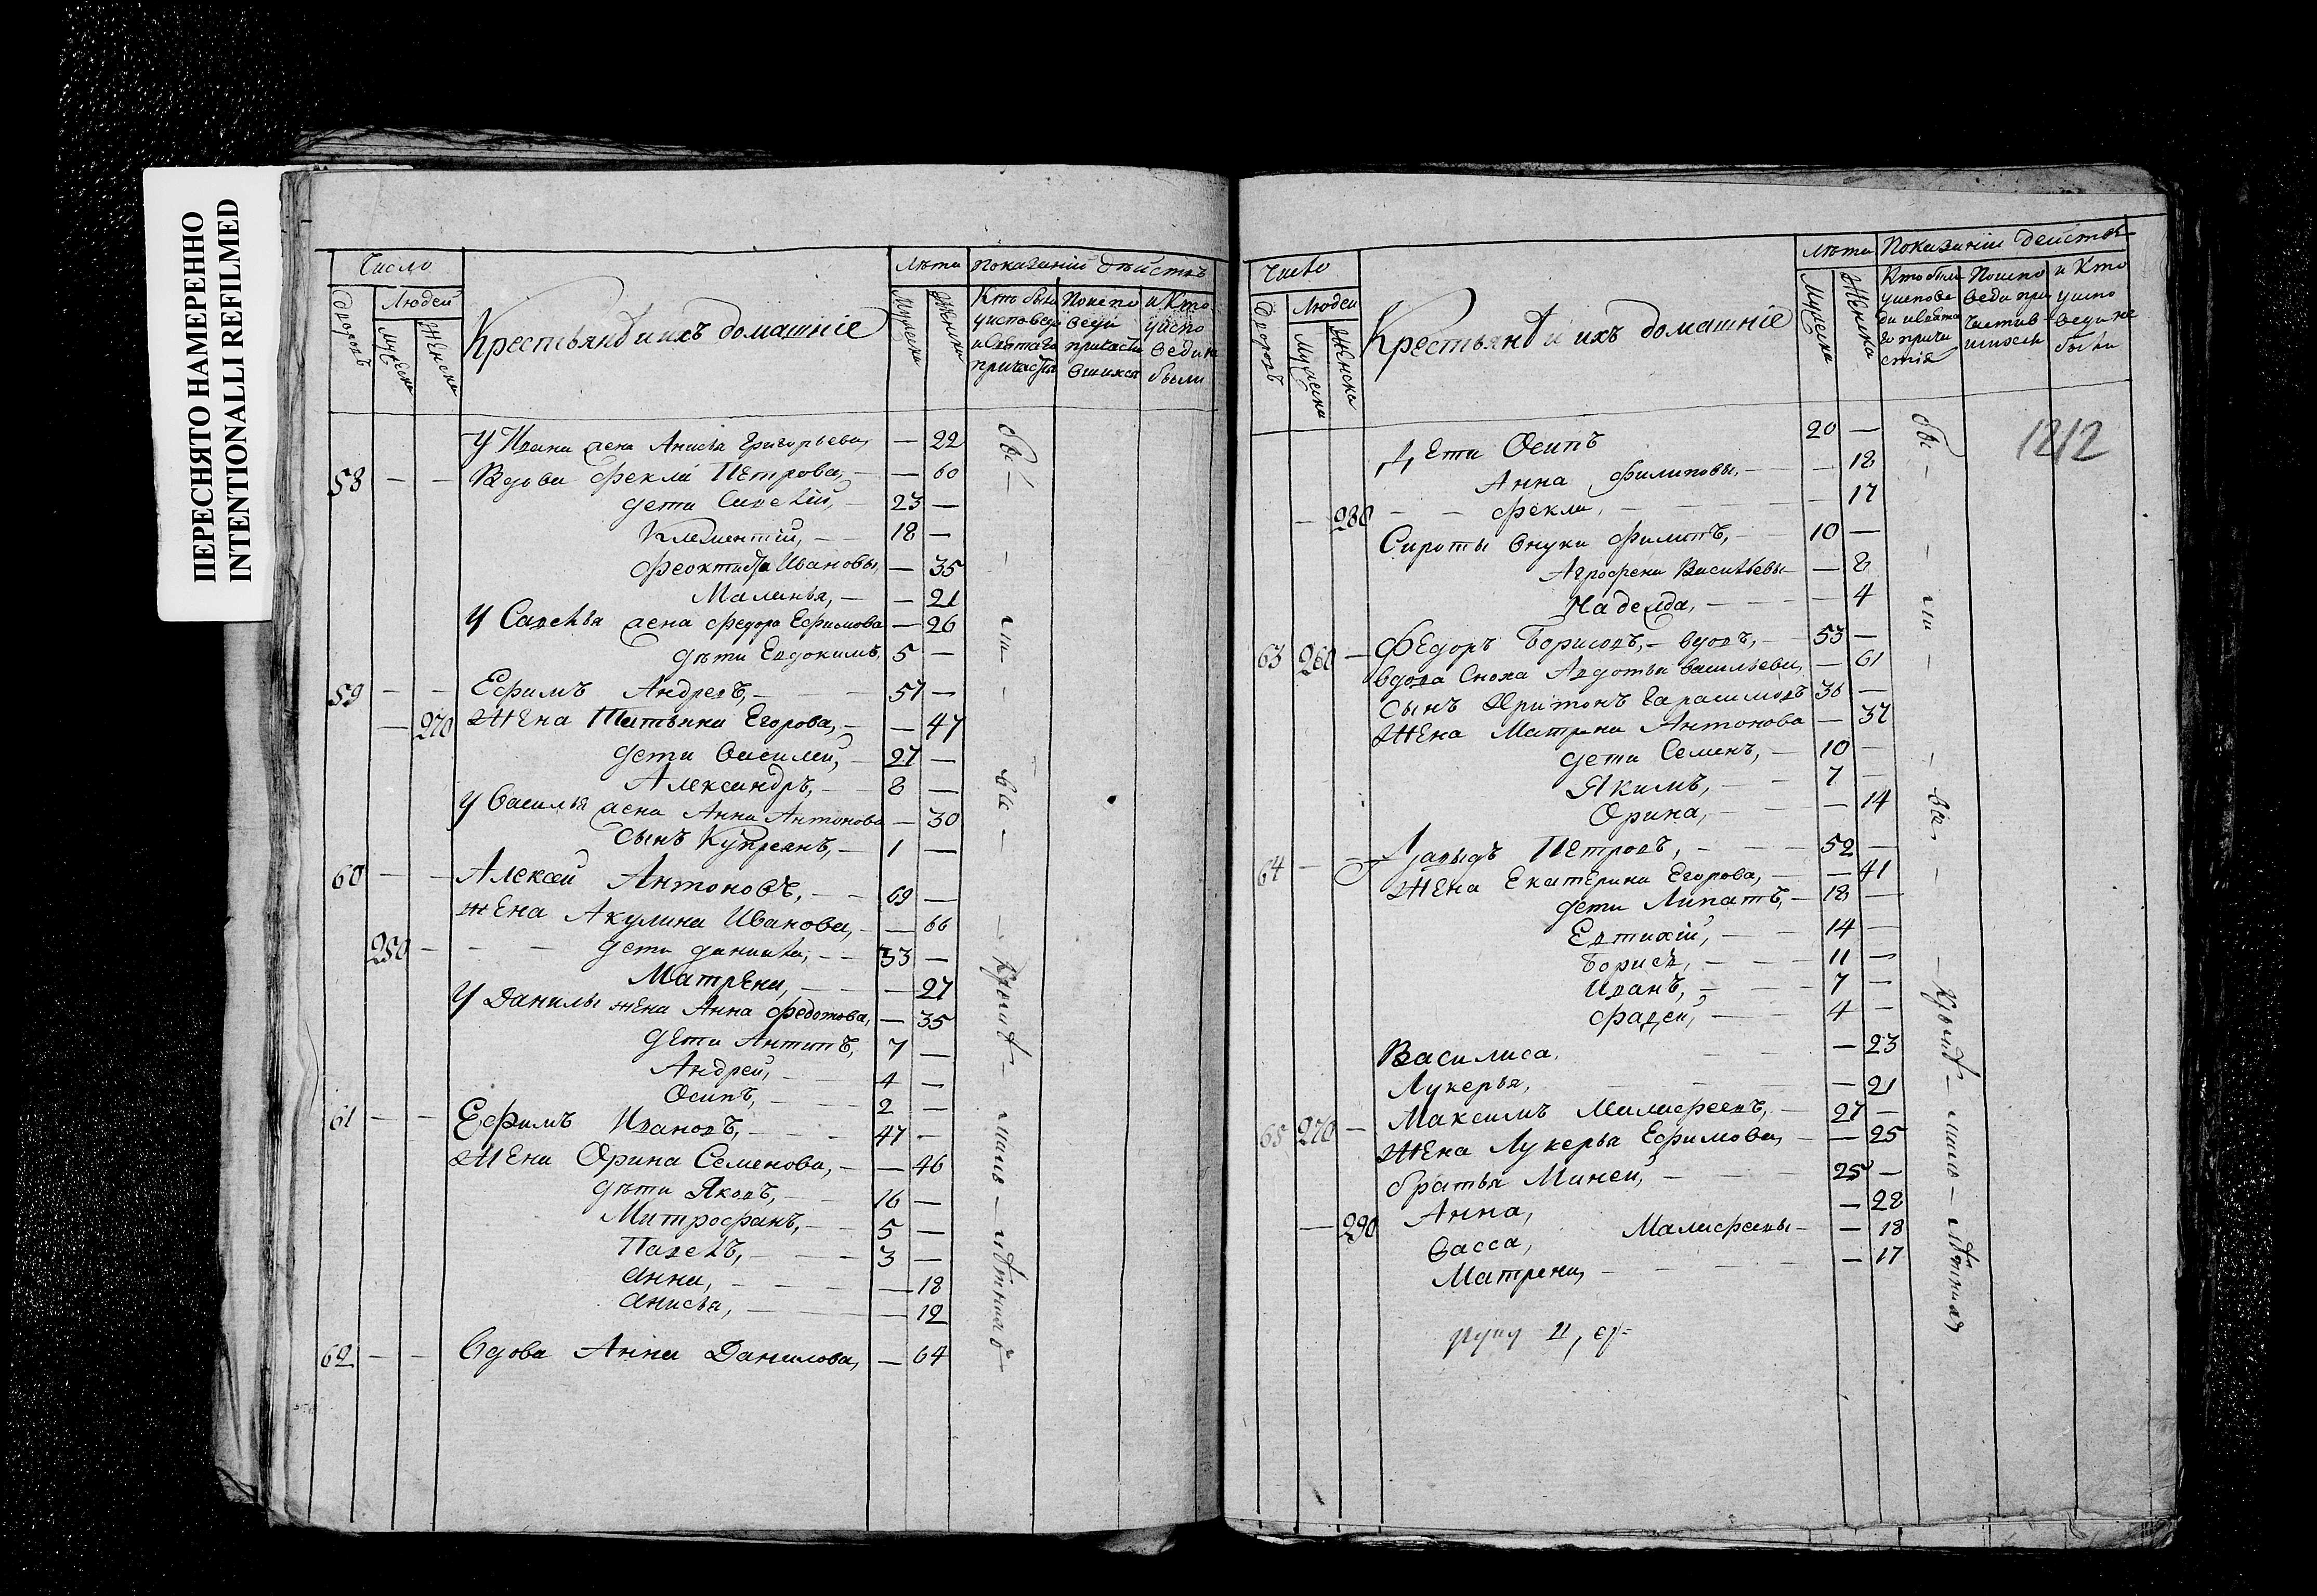 ПЕРЕСНЯТО НАМЕРЕННО
INTENTIONALLI REFILMED
Число
Людей
Дворовъ
Мужеска
Женска
Крестьянѣ и ихъ домашніе
Лѣта
Мужеска
Женска
показаніи дѣйствъ
Кто были
у исповеди
и святаго
причастія
По испо
веди
причасти
вшихся
и Кто
у испо
веди не
были
У Ивана жена Анисья Григорьева, — 22
58 — — Вдова Фекла Петрова, — 60
дети Савелій, 23 —
Климентій, 18 —
Феоктиста Ивановы, — 35
Маланья, — 21
У Савелья жена Федора Ефимова — 26
дѣти Евдокимъ, 5 —
59 — — Ефимъ Андреевъ, 57 —
— 270 Жена Татьяна Егорова, — 47
дети Василей, 27 —
Александръ, 8 —
У Василья жена Анна Антонова — 30
сынъ Купреянъ, 1 —
60 — — Алексей Антоновъ, 69 —
жена Акулина Иванова, — 66
250 — дети Данила, 33 —
Матрена, — 27
У Данилы жена Анна Федотова, — 35
дети Антипъ, 7 —
Андрей, 4 —
Осипъ, 2 —
61 — — Ефимъ Ивановъ, 47 —
Жена Орина Семенова, — 46
дѣти Яковъ, 16 —
Митрофанъ, 5 —
Павелъ, 3 —
Анна, — 18
Анисья, — 12
62 — — Вдова Анна Данилова, — 64
Число
Людей
Дворовъ
Мужеска
Женска
Крестьянѣ и ихъ домашніе
Лѣта
Мужеска
Женска
Показаніи действъ
Кто были
у испове
ди и свята
го прича
стія
По испо
веди при
частив
шихся
и Кто
у испо
веди не
были
1212
Дети Осипъ 20 —
Анна Филиповы, — 18
— 280 Фекла, — 17
Сироты внуки Филипъ, 10 —
Агрофена Васильевы — 8
Надежда, — 4
63 260 — Федоръ Борисовъ, — вдовъ, 53 —
вдова Сноха Авдотья Васильева, — 61
Сынъ Харитонъ Гарасимовъ 36 —
Жена Матрена Антонова — 37
дети Семенъ, 10 —
Якимъ, 7 —
Орина, — 14
64 — Давыдъ Петровъ, 52 —
Жена Екатерина Егорова, — 41
дети Липатъ, 18 —
Евтихій, 14 —
Борисъ, 11 —
Иванъ, 7 —
Фадей, 4 —
Василиса, — 23
Лукерья, — 21
65 270 — Максимъ Малафеевъ, 27 —
Жена Лукерья Ефимова, — 25
братья Миней, 25 —
Анна, — 22
— 290 Васса, Малафеевы — 18
Матрена, — 17